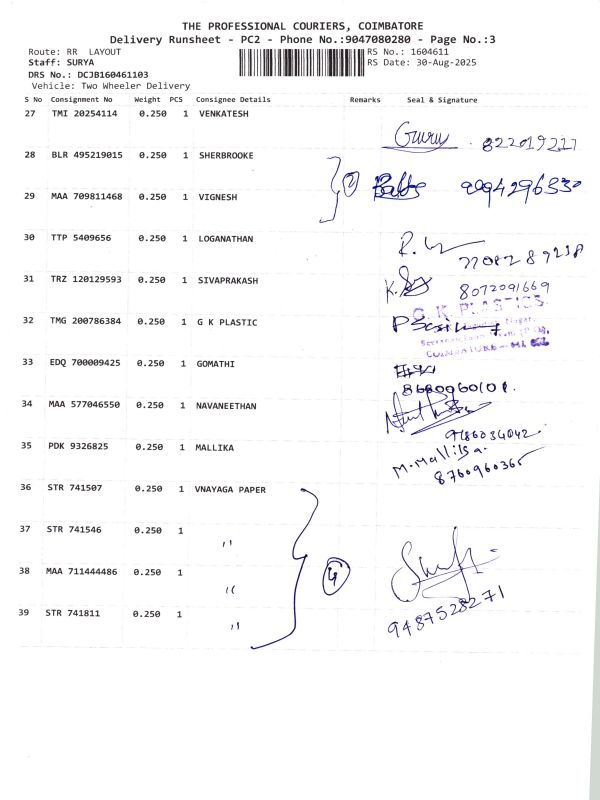 THE PROFESSIONAL COURIERS, COIMBATORE
Delivery Runsheet - PC2 - Phone No.:9047080280 - Page No.:3
Route: RR LAYOUT RS No.: 1604611
Staff: SURYA RS Date: 30-Aug-2025
DRS No.: DCJB160461103
Vehicle: Two Wheeler Delivery
S No Consignment No Weight PCS Consignee Details Remarks Seal & Signature
27 TMI 20254114 0.250 1 VENKATESH
Guru 822019217
28 BLR 495219015 0.250 1 SHERBROOKE
2 9994296330
29 MAA 709811468 0.250 1 VIGNESH
30 TTP 5409656 0.250 1 LOGANATHAN
31 TRZ 120129593 0.250 1 SIVAPRAKASH
8072091669
32 TMG 200786384 0.250 1 G K PLASTIC
G. K PLASTICS
COIMBATORE
33 EDQ 700009425 0.250 1 GOMATHI
8680960101.
34 MAA 577046550 0.250 1 NAVANEETHAN
35 PDK 9326825 0.250 1 MALLIKA
M. Mallika.
8760960365
36 STR 741507 0.250 1 VNAYAGA PAPER
37 STR 741546 0.250 1 "
38 MAA 711444486 0.250 1 "
4
39 STR 741811 0.250 1 "
9487528271